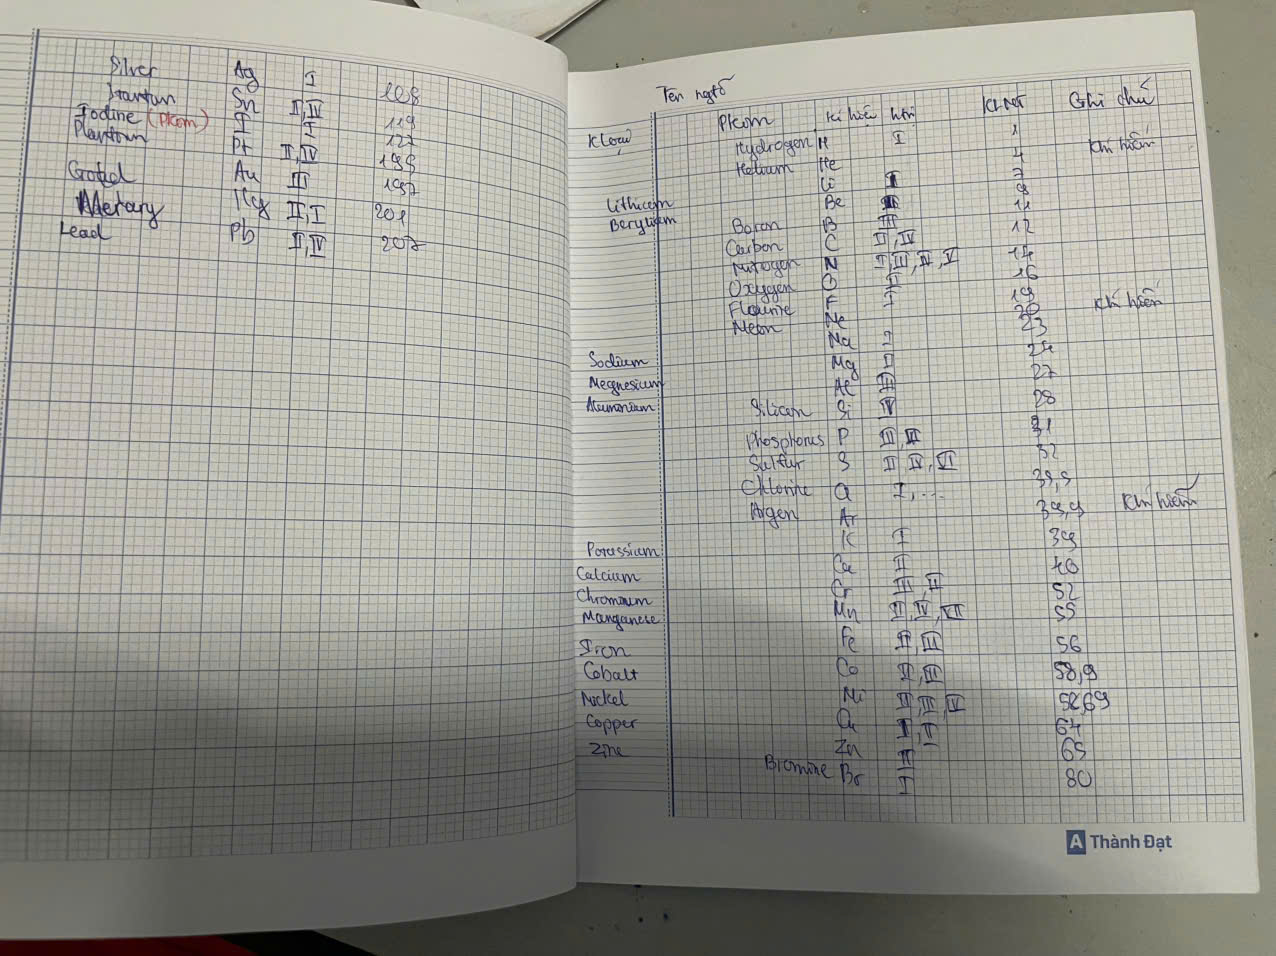 Silver Ag I 108
Stantum Sn II,IV 119
Iodine (Pkom) I I 127
Plantom Pt II,IV 195
Au III 197
Hg II,I 201
Lead Pb II,IV 207
Tên ngtố
K loại Pkom Kí hiệu htrị KLNT Ghi chú
Hydrogen H I 1
Helium He 4 Khí hiếm
Lithium Li I 7
Beryllium Be II 9
Boron B III 11
Carbon C II,IV 12
Nitogen N I,III,IV,V 14
Oxygen O II 16
Flourine F I 19
Neon Ne 20 Khí hiếm
Sodium Na I 23
Megnesium Mg II 24
Al III 27
Silicon Si IV 28
Phosphorus P III,V 31
Sulfur S II IV,VI 32
Chlorine Cl I,... 35,5
Argen Ar 39,9 Khí hiếm
Potassium K I 39
Calcium Ca II 40
Chromium Cr III,II 52
Manganese Mn II,IV,VII 55
Iron Fe II,III 56
Cobalt Co II,III 58,9
Nickel Ni II,III,IV 58,69
Copper Cu I,II 64
Zinc Zn II 65
Bromine Br I 80
A Thành Đạt